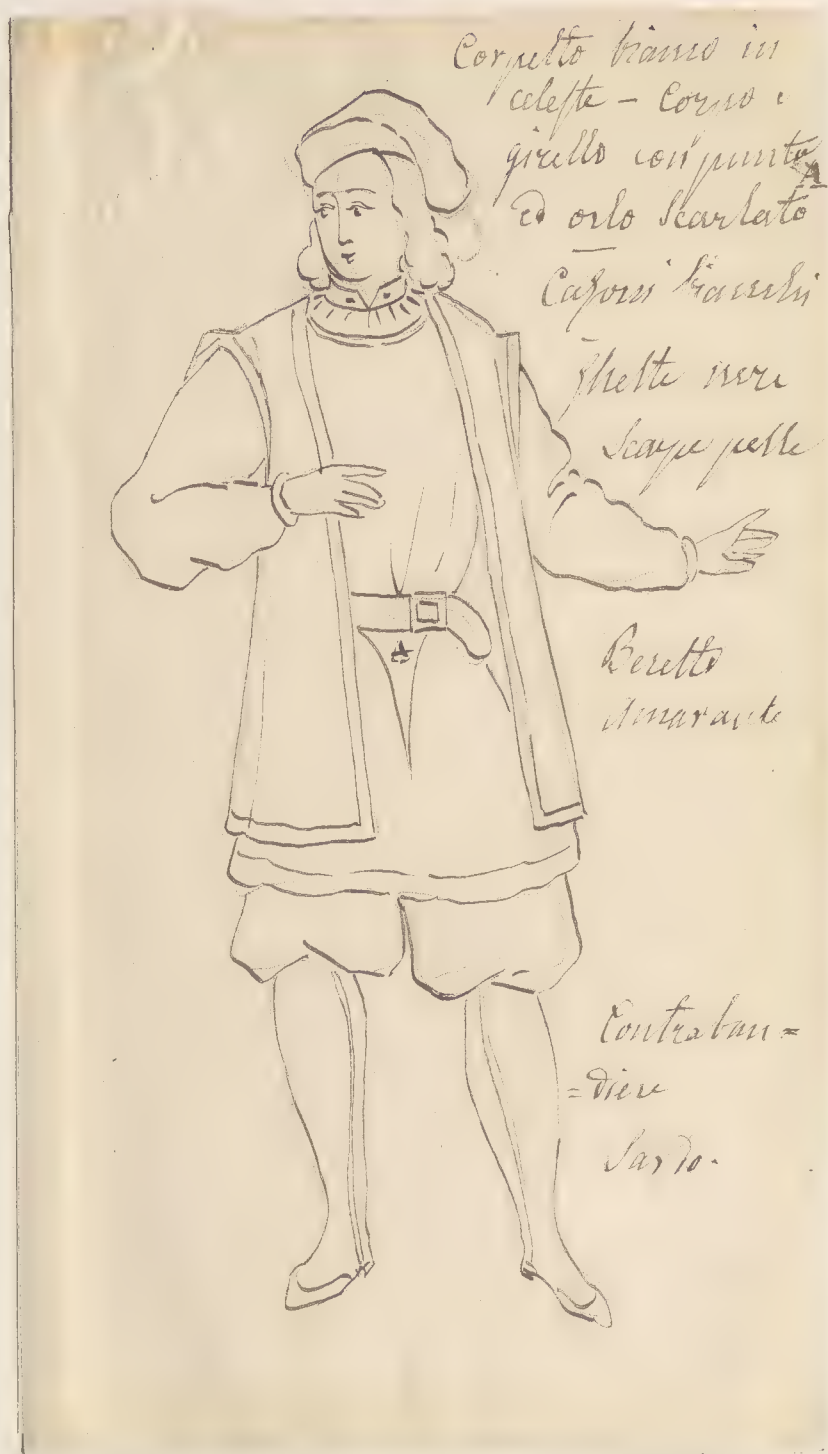 Corpetto bianco in
celeste - Corpo e
girello con punto
A
ed orlo Scarlato
Calzoni bianchi
Ghette nere
Scarpe pelle
A
Beretto
Amarante
Contraban=
=diere
Sardo.